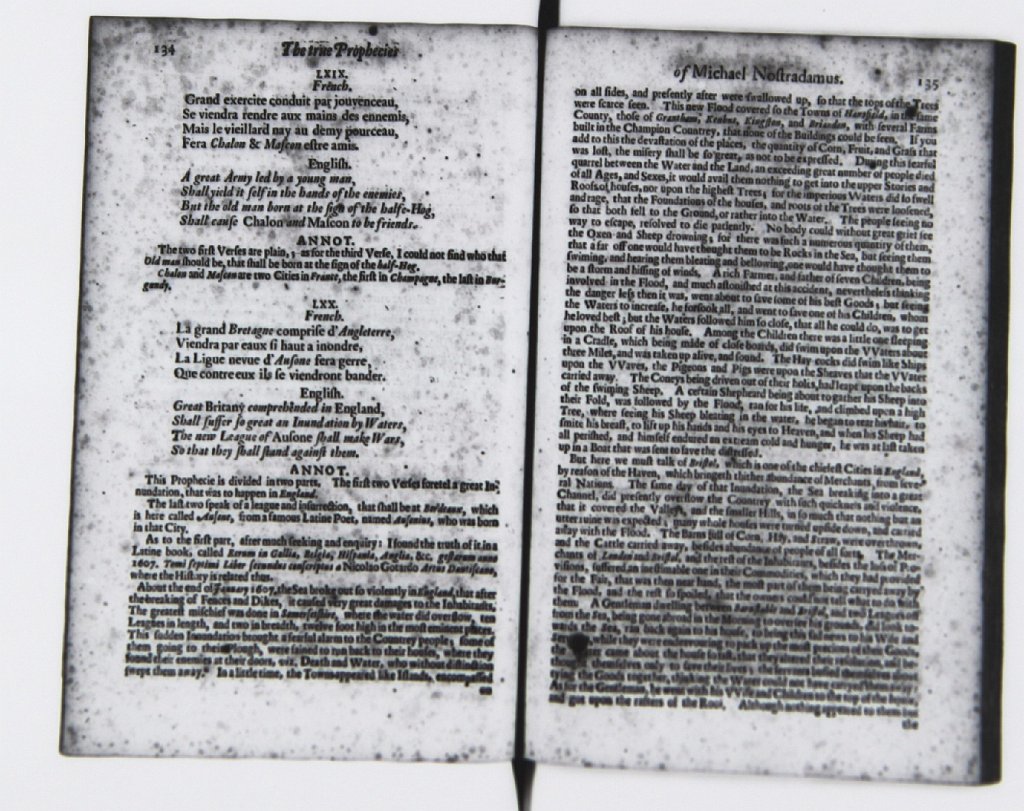 134 The true Prophecies
LXIX.
French.
Grand exercite conduit par jouvenceau,
Se viendra rendre aux mains des ennemis,
Mais le vieillard nay au demy pourceau,
Fera Chalon & Mascon estre amis.
English.
A great Army led by a young man,
Shall yield it self in the hands of the enemies,
But the old man born at the sign of the halfe-Hog,
Shall cause Chalon and Mascon to be friends.
ANNOT.
The two first Verses are plain, as for the third Verse, I could not find who that
Old man should be, that shall be born at the sign of the half-Hog.
Chalon and Mascon are two Cities in France, the first in Champagne, the last in Bur-
gundy.
LXX.
French.
La grand Bretagne comprise d'Angleterre,
Viendra par eaux si haut a inondre,
La Ligue neuve d'Ausone fera gerre,
Que contre eux ils se viendront bander.
English.
Great Britany comprehended in England,
Shall suffer so great an Inundation by Waters,
The new League of Ausone shall make Wars,
So that they shall stand against them.
ANNOT.
This Prophecie is divided in two parts. The first two Verses foretel a great In-
nundation, that was to happen in England.
The last two speak of a league and insurrection, that shall be at Bordeaux, which
is here called Ausone, from a famous Latine Poet, named Ausonius, who was born
in that City.
As to the first part, after much seeking and enquiry; I found the truth of it in a
Latine book, called Rerum in Gallia, Belgia, Hispania, Anglia, &c. gestarum anno
1607. Tomi septimi Liber secundus conscriptus a Nicolao Gotardo Artus Dantiscano,
where the History is related thus.
About the end of January 1607, the Sea broke out so violently in England, that after
the breaking of Fences and Dikes, it caused very great damages to the Inhabitants.
The greatest mischief was done in Somersetshire, where the water did overflow
Leagues in length, and two in breadth, twelve foot high in the most eminent places.
This sudden Innundation brought a fearful alarm to the Countrey people, some of
them going to their Plough, were fained to run back to their houses, where they
found their enemies at their doors, viz. Death and Water, who without distinction
swept them away. In a little time, the Towns appeared like Islands, encompassed
on
of Michael Nostradamus. 135
on all sides, and presently after were swallowed up, so that the tops of the Trees
were scarce seen. This new Flood covered so the Towns of Hunsfield, in the same
County, those of Grantham, Kenhus, Kingston, and Briandon, with several Farms
built in the Champion Countrey, that none of the Buildings could be seen. If you
add to this the devastation of the places, the quantity of Corn, Fruit, and Grass that
was lost, the misery shall be so great, as not to be expressed. During this fearful
quarrel between the Water and the Land, an exceeding great number of people died
of all Ages, and Sexes, it would avail them nothing to get into the upper Stories and
Roofs of houses, nor upon the highest Trees; for the imperious Waters did so swell
and rage, that the Foundations of the houses, and roots of the Trees were loosened,
so that both fell to the Ground, or rather into the Water. The people seeing no
way to escape, resolved to die patiently. No body could without great grief see
the Oxen and Sheep drowning; for there was such a numerous quantity of them,
that a far off one would have thought them to be Rocks in the Sea, but seeing them
swiming, and hearing them bleating and bellowing, one would have thought them to
be a storm and hissing of winds. A rich Farmer, and father of seven Children, being
involved in the Flood, and much astonished at this accident, nevertheless thinking
the danger less then it was, went about to save some of his best Goods; but seeing
the Waters to increase, he forsook all, and went to save one of his Children, whom
he loved best; but the Waters followed him so close, that all he could do, was to get
upon the Roof of his house. Among the Children there was a little one sleeping
in a Cradle, which being made of close boards, did swim upon the VVaters about
three Miles, and was taken up alive, and sound. The Hay cocks did swim like Ships
upon the VVaves, the Pigeons and Pigs were upon the Sheaves that the VVater
carried away. The Coneys being driven out of their holes, had leapt upon the backs
of the swiming Sheep. A certain Shepheard being about to gather his Sheep into
their Fold, was followed by the Flood, ran for his life, and climbed upon a high
Tree, where seeing his Sheep bleating in the water, he began to tear his hair, to
smite his breast, to lift up his hands and his eyes to Heaven, and when his Sheep had
all perished, and himself endured an extream cold and hunger, he was at last taken
up in a Boat that was sent to save the distressed.
But here we must talk of Bristol, which is one of the chiefest Cities in England,
by reason of the Haven, which bringeth thither abundance of Merchants, from seve-
ral Nations. The same day of that Inundation, the Sea breaking into a great
Channel, did presently overflow the Country with such quickness and violence,
that it covered the Valleys, and the smaller Hills, so that nothing but an
utter ruine was expected; many whole houses were turned upside down, and carried
away with the Flood. The Barns full of Corn, Hay, and Straw, were overthrown
and the Cattle carried away, besides abundance of people of all sorts. The Mer-
chants of London and Bristol, and the rest of the Inhabitants, besides the loss of Pro-
visions, suffered an inestimable one in their Commodities, which they had provided
for the Fair, that was then near hand, the most part of them being carried away by
the Flood, and the rest so spoiled, that the owners could
them. A Gentleman dwelling between and Bristol,
from the Sea, being gone abroad in the Morning
At last the Gentleman, he went with his VVife and Children to the top of the house,
and got upon the rafters of the Roof. Although nothing appeared to them